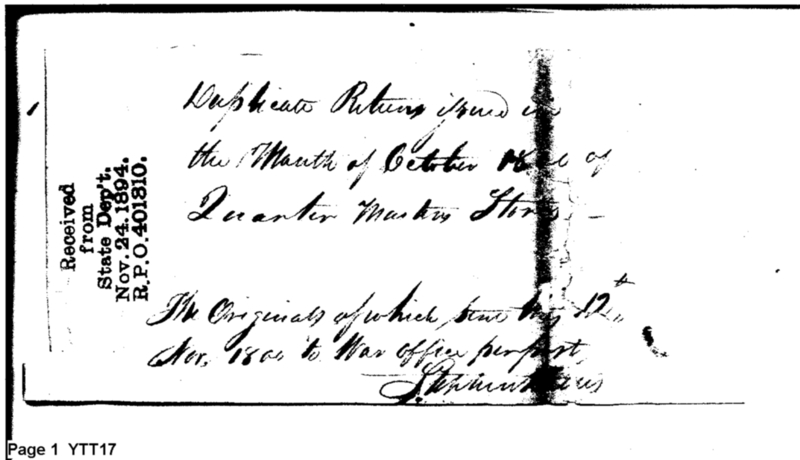 Received
from
State Dep't.
Nov. 24. 1894.
R.P.O. 401810.
Duplicate Returns issued in
the Month of October of
Quarter Masters Stores
The Originals of which sent this 12th
Nov. 1800 to War office per post
Page 1 YTT17